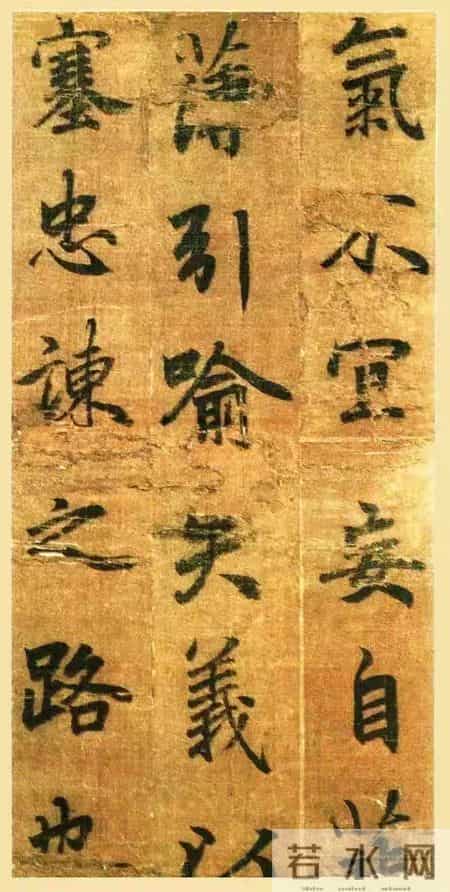 氣不宜妄自菲
薄引喻失義以
塞忠諫之路也
若水网